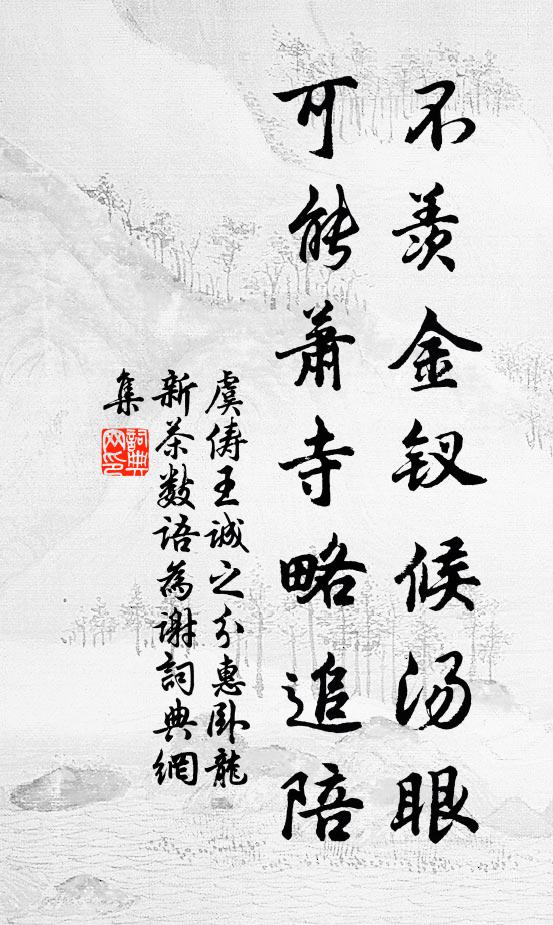 不羡金钗候汤眼
可能蕭寺略追陪
虞儔王诚之分惠卧龍
新茶数语為謝詞典網
集
詞典
网印